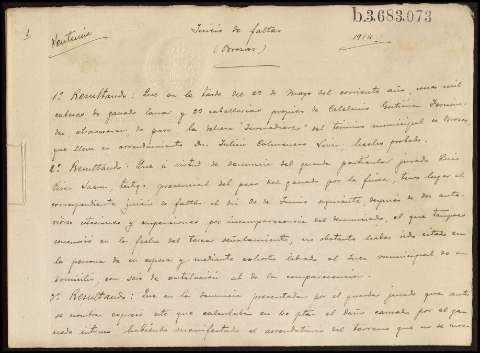 b.3.683.073
Juicio de faltas
1914
Sentencia
(Brozas)
1º. Resultando: Que en la tarde del 2º de Mayo del corriente año, unas mil
cabezas de ganado lanar y 20 caballerías propias de Celedonio Gutierrez
atravesaron de paso la dehesa del término municipal de Brozas
que lleva en arrendamiento Dn. Julian hechos probados.
2º. Resultando: Que á virtud de denuncia del guarda particular jurado Luis
testigo presencial del paso del ganado por la finca, tuvo lugar el
correspondiente juicio de faltas el dia de Junio siguiente, despues de dos
y suspensiones por incomparecencia del denunciado, el que tampoco
concurrió en la fecha del tercer señalamiento, no obstante haber sido citado en
la persona de su esposa y mediante exhorto librado al Juez municipal de su
domicilio, con seis de antelación al de la comparecencia.
3º. Resultando: Que en la denuncia presentada por el guarda jurado que antes
se nombra expresó este que calculaba en ptas el daño causado por el ga-
nado habiendo manifestado el arrendatario del terreno que no se